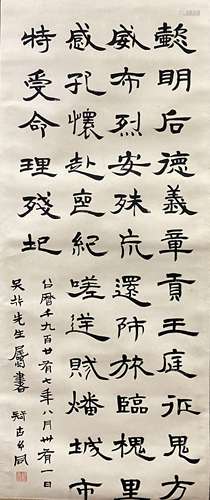 懿明后德義章貢王庭征鬼方
威布烈安殊巟還師旅臨槐里
感孔懷赴喪紀嗟逆賊燔城市
特受命理殘圮
公曆千九百廿有七年八月卅有一日
吳先生屬書 疑古玄同